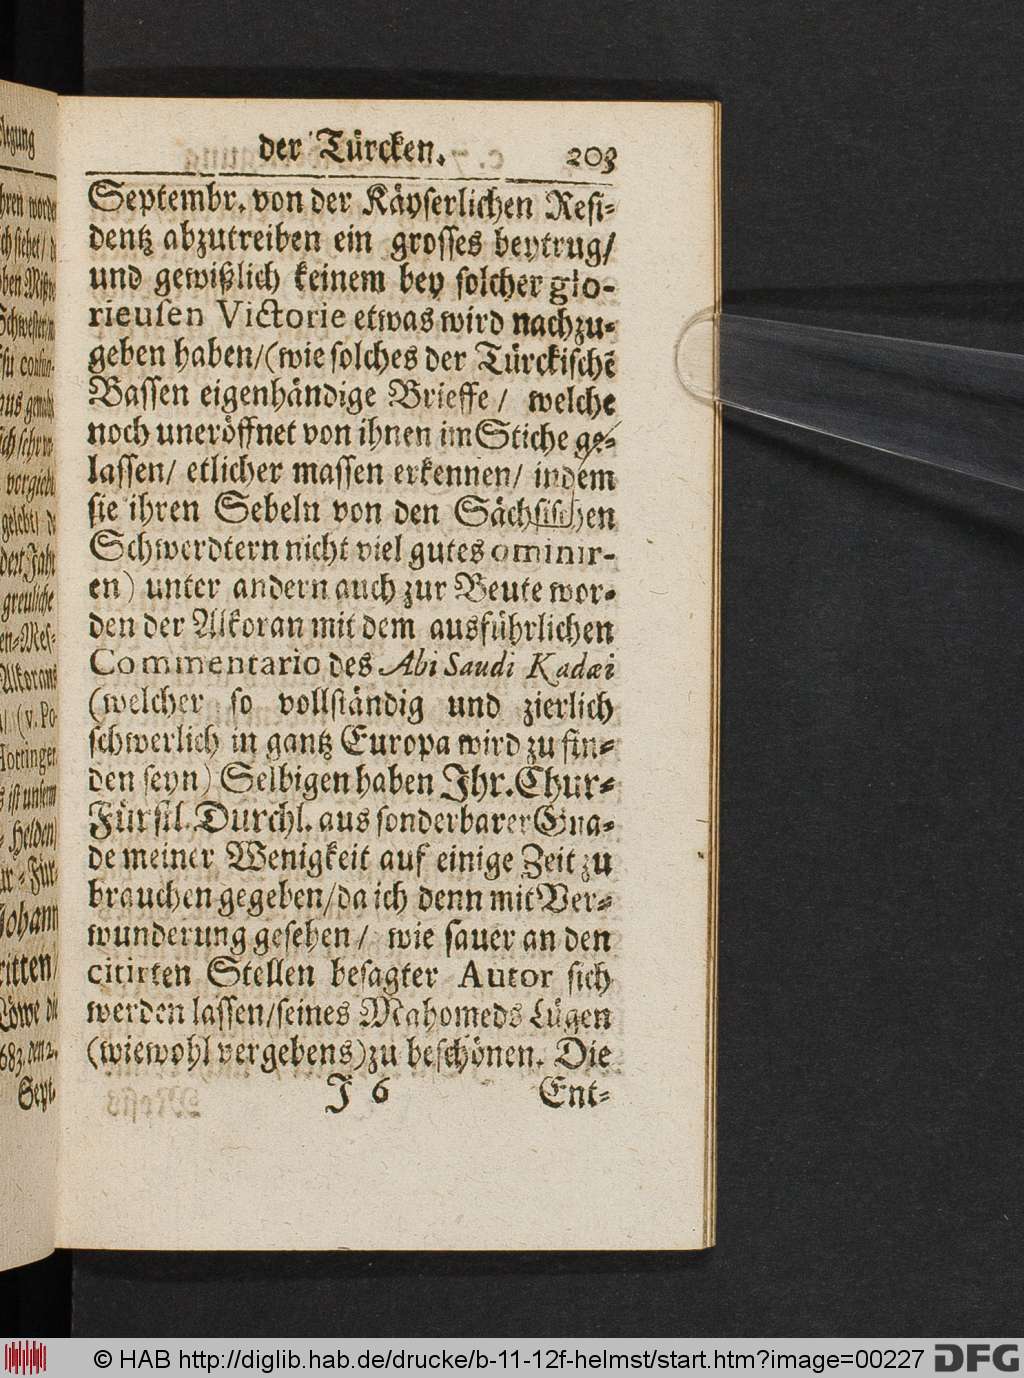 der Türcken. 203
Septembr. von der Käyserlichen Resi-
dentz abzutreiben ein grosses beytrug/
und gewißlich keinem bey solcher glo-
rieusen Victorie etwas wird nachzu-
geben haben/(wie solches der Türckischē
Bassen eigenhändige Brieffe/ welche
noch uneröffnet von ihnen im Stiche ge-
lassen/ etlicher massen erkennen/ indem
sie ihren Sebeln von den Sächsischen
Schwerdtern nicht viel gutes ominir-
en) unter andern auch zur Beute wor-
den der Alkoran mit dem ausführlichen
Commentario des Abi Saudi Kadæi
(welcher so vollständig und zierlich
schwerlich in gantz Europa wird zu fin-
den seyn) Selbigen haben Ihr. Chur-
Fürstl. Durchl. aus sonderbarer Gna-
de meiner Wenigkeit auf einige Zeit zu
brauchen gegeben/da ich denn mit Ver-
wunderung gesehen/ wie sauer an den
citirten Stellen besagter Autor sich
werden lassen/seines Mahomeds Lügen
(wiewohl vergebens)zu beschönen. Die
J 6 Ent-
© HAB http://diglib.hab.de/drucke/b-11-12f-helmst/start.htm?image=00227 DFG